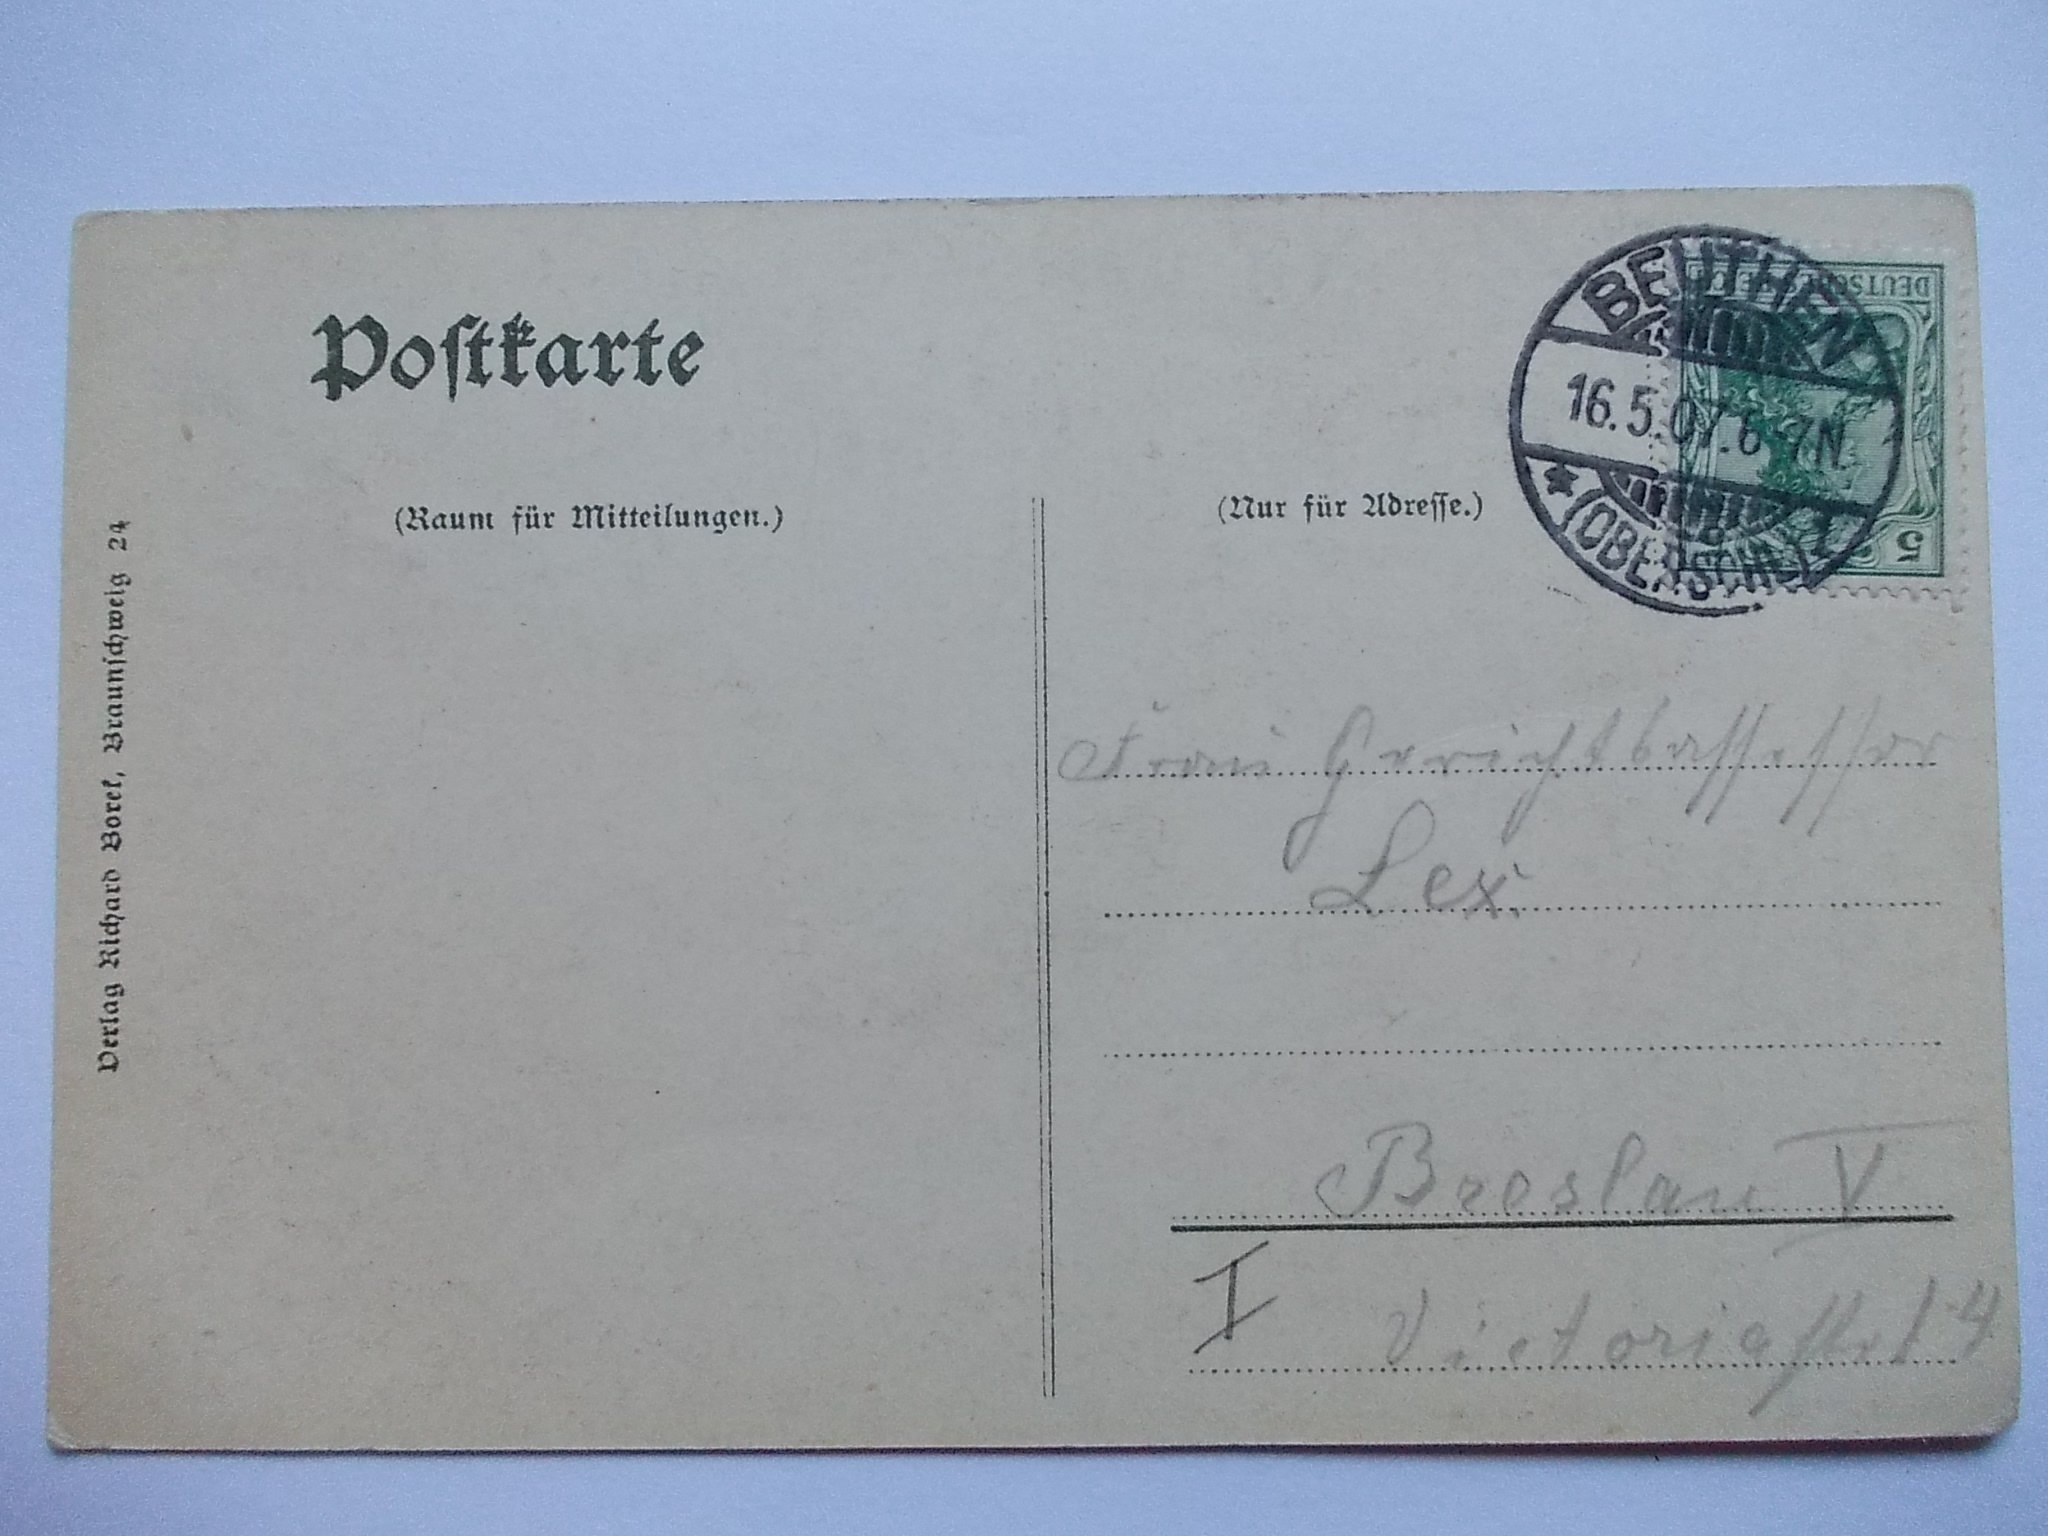 Postkarte
(Raum für Mitteilungen.)
(Nur für Adresse.)
Verlag Richard Borek, Braunschweig 24
BEUTHEN
16.5.07. 6-7N.
* (OBERSCHL)
DEUTSCHES REICH
5
Frau Gerichtsassessor
Lex.
Breslau V
I
Victoriastr